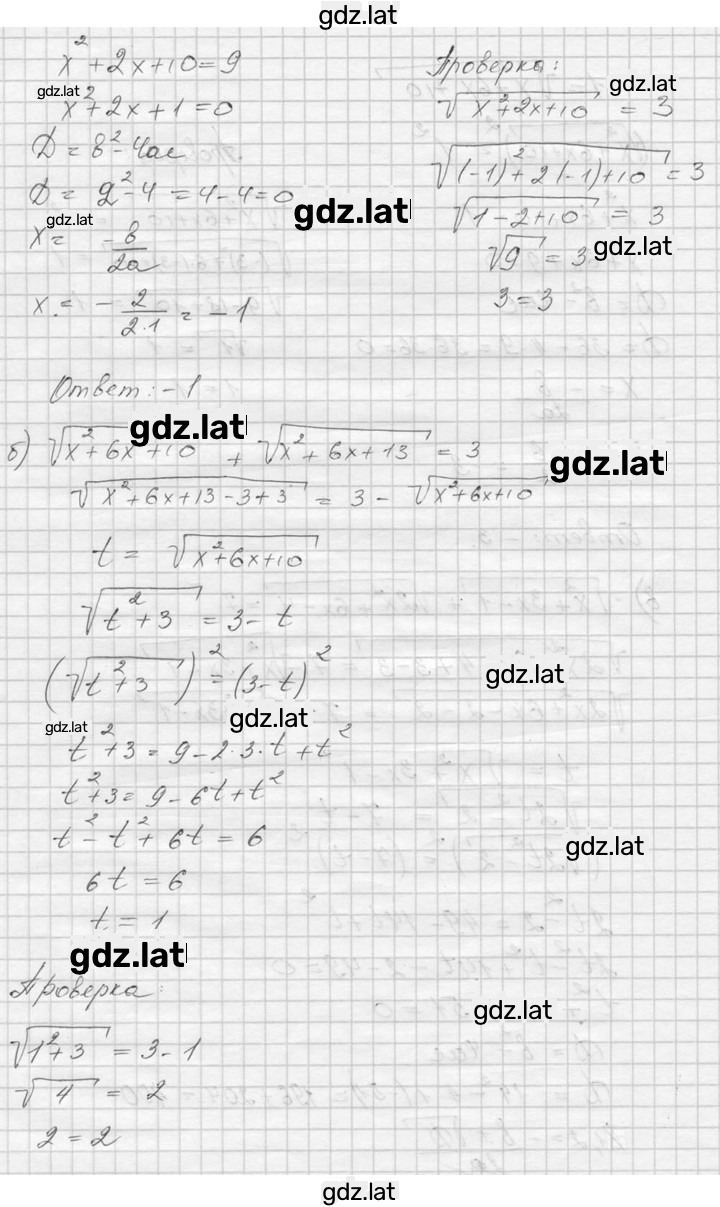 gdz.lat
x² + 2x + 10 = 9
gdz.lat
x² + 2x + 1 = 0
D = b² - 4ac
D = 2² - 4 = 4 - 4 = 0
gdz.lat
x = -b/2a
x = - 2/2·1 = -1
Проверка:
gdz.lat
√(x² + 2x + 10) = 3
√((-1)² + 2(-1) + 10) = 3
gdz.lat
√(1 - 2 + 10) = 3
√9 = 3
gdz.lat
3 = 3
Ответ: -1
gdz.lat
б) √(x² + 6x + 10) + √(x² + 6x + 13) = 3
gdz.lat
√(x² + 6x + 13 - 3 + 3) = 3 - √(x² + 6x + 10)
t = √(x² + 6x + 10)
√(t² + 3) = 3 - t
(√(t² + 3))² = (3 - t)²
gdz.lat
gdz.lat
gdz.lat
t² + 3 = 9 - 2·3·t + t²
t² + 3 = 9 - 6t + t²
t² - t² + 6t = 6
gdz.lat
6t = 6
t = 1
gdz.lat
Проверка:
gdz.lat
√(1² + 3) = 3 - 1
√4 = 2
2 = 2
gdz.lat